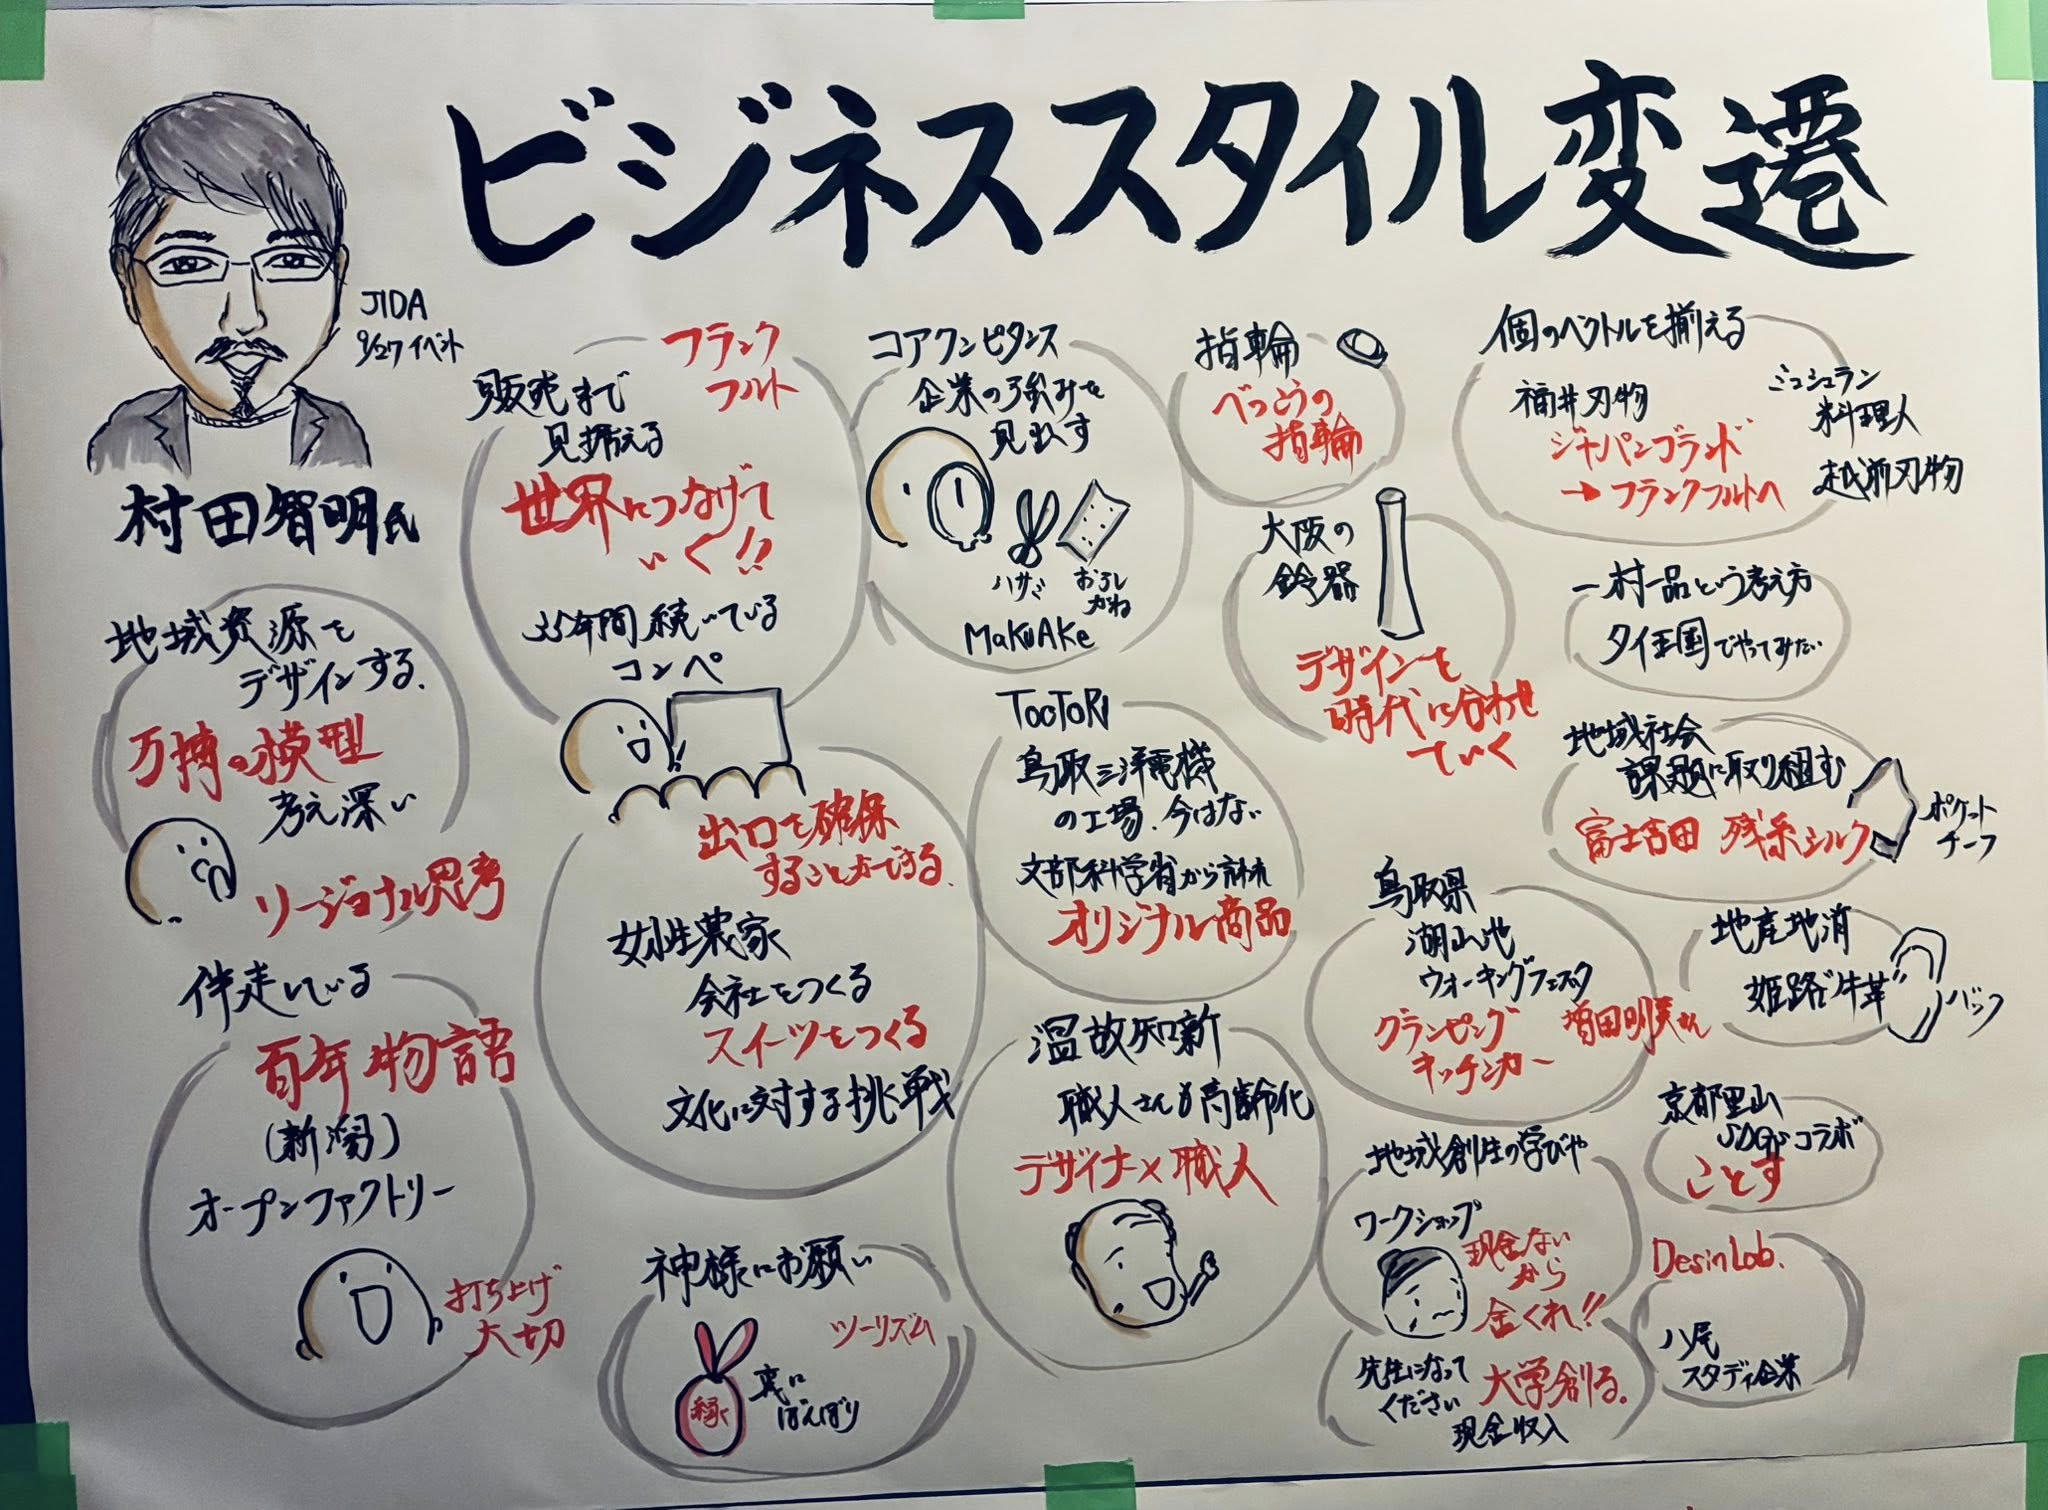 ビジネススタイル変遷
JIDA
9/27イベント
村田智明氏
地域資源を
デザインする.
万博の模型
考え深い
リージョナル思考
伴走している
百年物語
(新潟)
オープンファクトリー
打ち上げ
大切
フランク
フルト
販売まで
見据える
世界につなげて
いく!!
35年間続いている
コンペ
出口を確保
することができる.
女性農家
会社をつくる
スイーツをつくる
文化に対する挑戦
神様にお願い
ツーリズム
縁
ぼんぼり
コアコンピタンス
企業の強みを
見出す
ハサミ
おろし
がね
MaKuAKe
TooToRi
鳥取三洋電機
の工場.今はない
文部科学省から
オリジナル商品
温故知新
職人さんも高齢化
デザイナー×職人
指輪
べっこうの
指輪
大阪の
錫器
デザインを
時代に合わせ
ていく
鳥取県
湖山池
ウォーキングフェスタ
グランピング
キッチンカー
増田明美さん
地域創生の学びや
ワークショップ
現金ない
から
金くれ!!
先生になって
ください
大学創る.
現金収入
個のベクトルを揃える
福井刃物
ジャパンブランド
→フランクフルトへ
ミシュラン
料理人
越前刃物
一村一品という考え方
タイ王国でやってみたい
地域社会
課題に取り組む
富士吉田 残糸シルク
ポケット
チーフ
地産地消
姫路"牛革"
バック
京都里山
SDGsコラボ
ことす
DesinLab.
八尾
スタディ企業